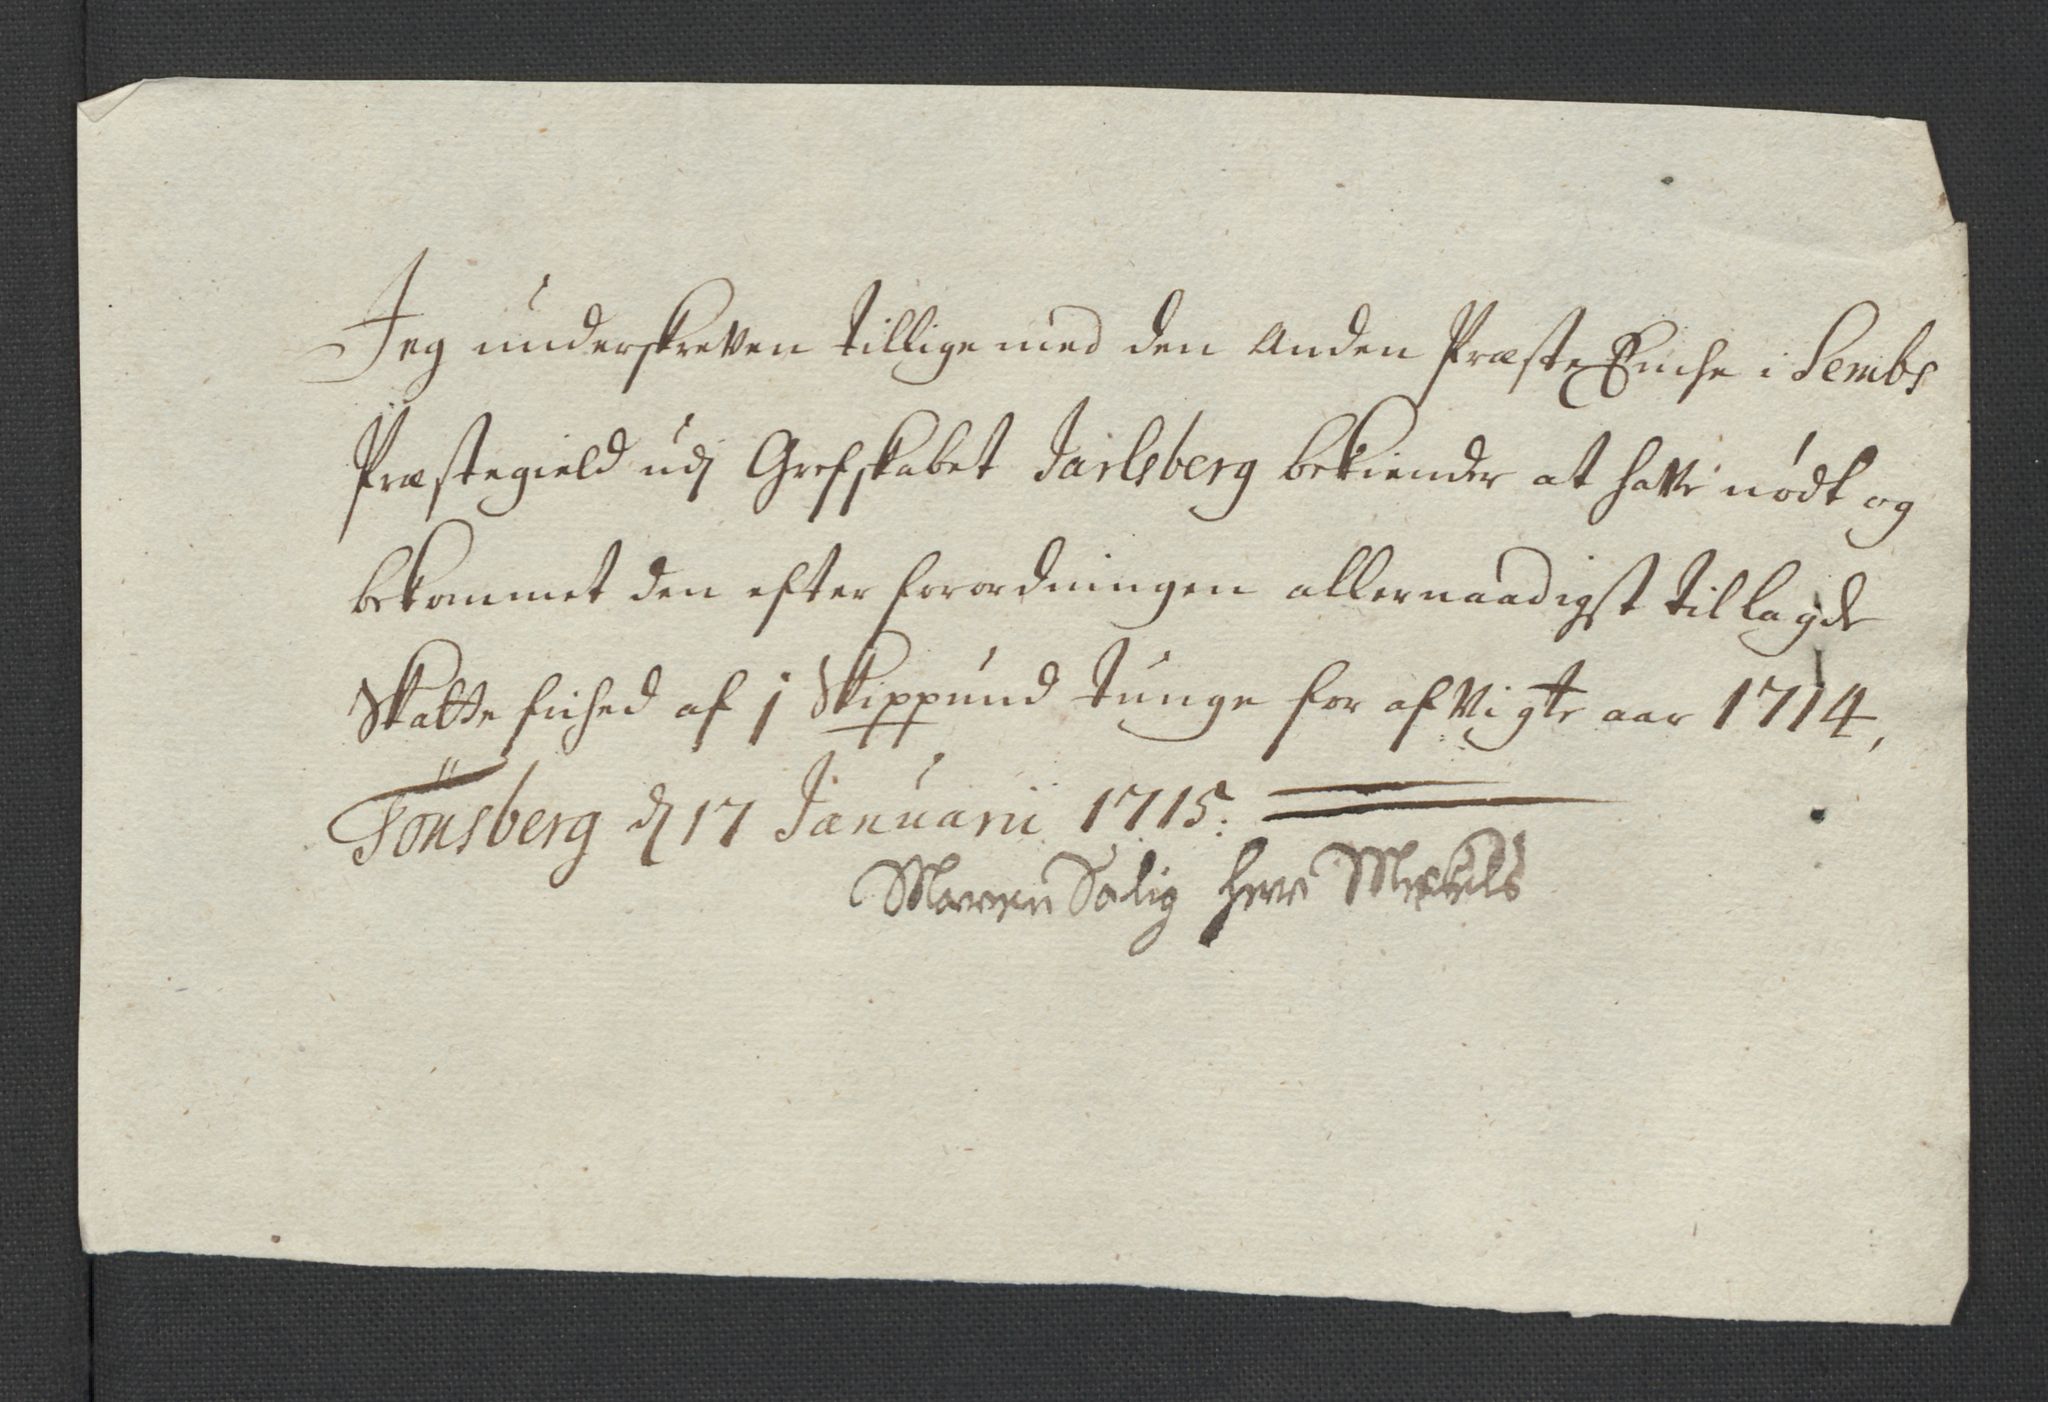 Jeg underskreven tillige med den anden Præste Enche i Sembs
Præstegield udj Grefskabet Jarlsberg bekiender at have nødt og
bekommet den efter forordningen allernaadigst tillagde
Skatte frihed af 1 Skippund tunge for afvigte aar 1714,
Tönsberg d 17 Januarii 1715.
Maren Salig Herr Mickels